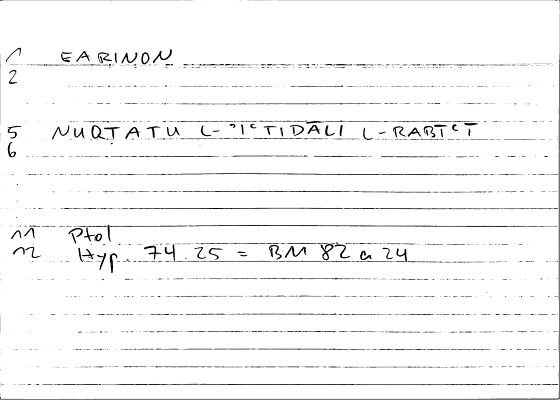 1 EARINON
2
5 NUQTATU L-ʾIʿTIDĀLI L-RABĪʿĪ
6
11 Ptol
12 Hyp. 74 25 = BM 82 a 24